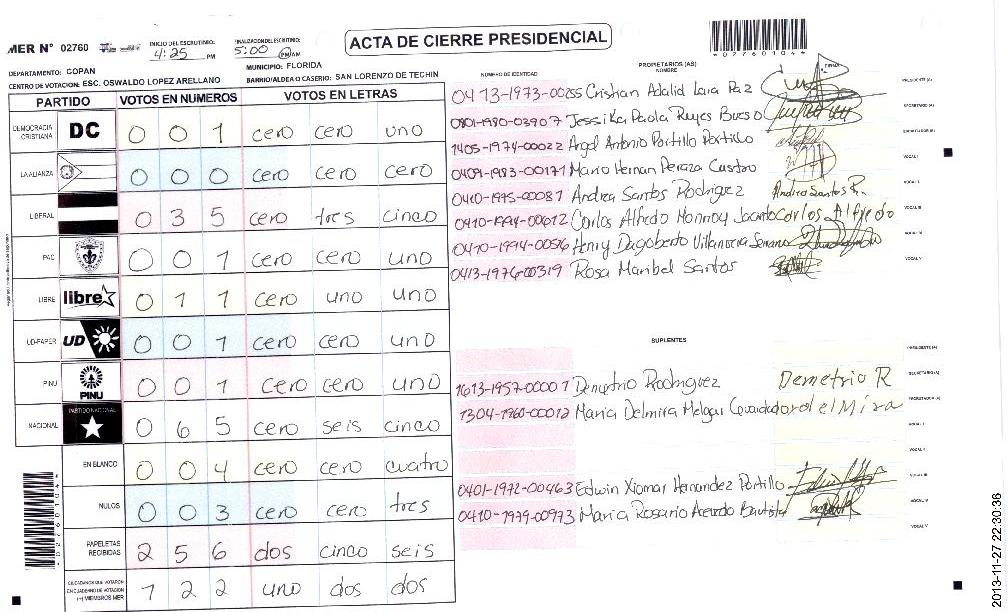 MER N° 02760
INICIO DEL ESCRUTINIO: 4:25 PM
FINALIZACION DEL ESCRUTINIO: 5:00 PM AM
ACTA DE CIERRE PRESIDENCIAL
*02760104*
DEPARTAMENTO: COPAN
MUNICIPIO: FLORIDA
CENTRO DE VOTACION: ESC. OSWALDO LOPEZ ARELLANO
BARRIO/ALDEA O CASERIO: SAN LORENZO DE TECHIN
PARTIDO VOTOS EN NUMEROS VOTOS EN LETRAS
DEMOCRACIA CRISTIANA DC 0 0 1 cero cero uno
LA ALIANZA 0 0 0 cero cero cero
LIBERAL 0 3 5 cero tres cinco
PAC 0 0 1 cero cero uno
LIBRE libre 0 1 1 cero uno uno
UD-FAPER UD 0 0 1 cero cero uno
PINU PINU 0 0 1 cero cero uno
NACIONAL PARTIDO NACIONAL 0 6 5 cero seis cinco
EN BLANCO 0 0 4 cero cero cuatro
NULOS 0 0 3 cero cero tres
PAPELETAS RECIBIDAS 2 5 6 dos cinco seis
CIUDADANOS QUE VOTARON EN CUADERNO DE VOTACION (+) MIEMBROS MER 1 2 2 uno dos dos
*02760104*
NUMERO DE IDENTIDAD
PROPIETARIOS (AS)
NOMBRE
FIRMA
0413-1973-00255 Cristhian Adalid Lara Paz PRESIDENTE (A)
0801-1980-03907 Jessika Paola Reyes Bueso SECRETARIO (A)
1405-1974-00022 Angel Antonio Portillo Portillo ESCRUTADOR (A)
0409-1983-00171 Mario Hernan Peraza Castro VOCAL I
0410-1995-00087 Andrea Santos Rodriguez Andrea Santos R. VOCAL II
0410-1994-00612 Carlos Alfredo Monrroy Jacinto carlos Alfredo VOCAL III
0410-1994-00516 Henry Dagoberto Villanueva Serrano VOCAL IV
0413-1976-00319 Rosa Maribel Santos VOCAL V
SUPLENTES
PRESIDENTE (A)
1613-1957-00001 Demetrio Rodriguez Demetrio R SECRETARIO (A)
1304-1960-00012 Maria Delmira Melgar ESCRUTADOR (A)
VOCAL I
VOCAL II
0401-1972-00463 Edwin Xiomar Hernandez Portillo VOCAL III
0410-1979-00973 Maria Rosario Acevdo Bautista VOCAL IV
VOCAL V
2013-11-27 22:30:36